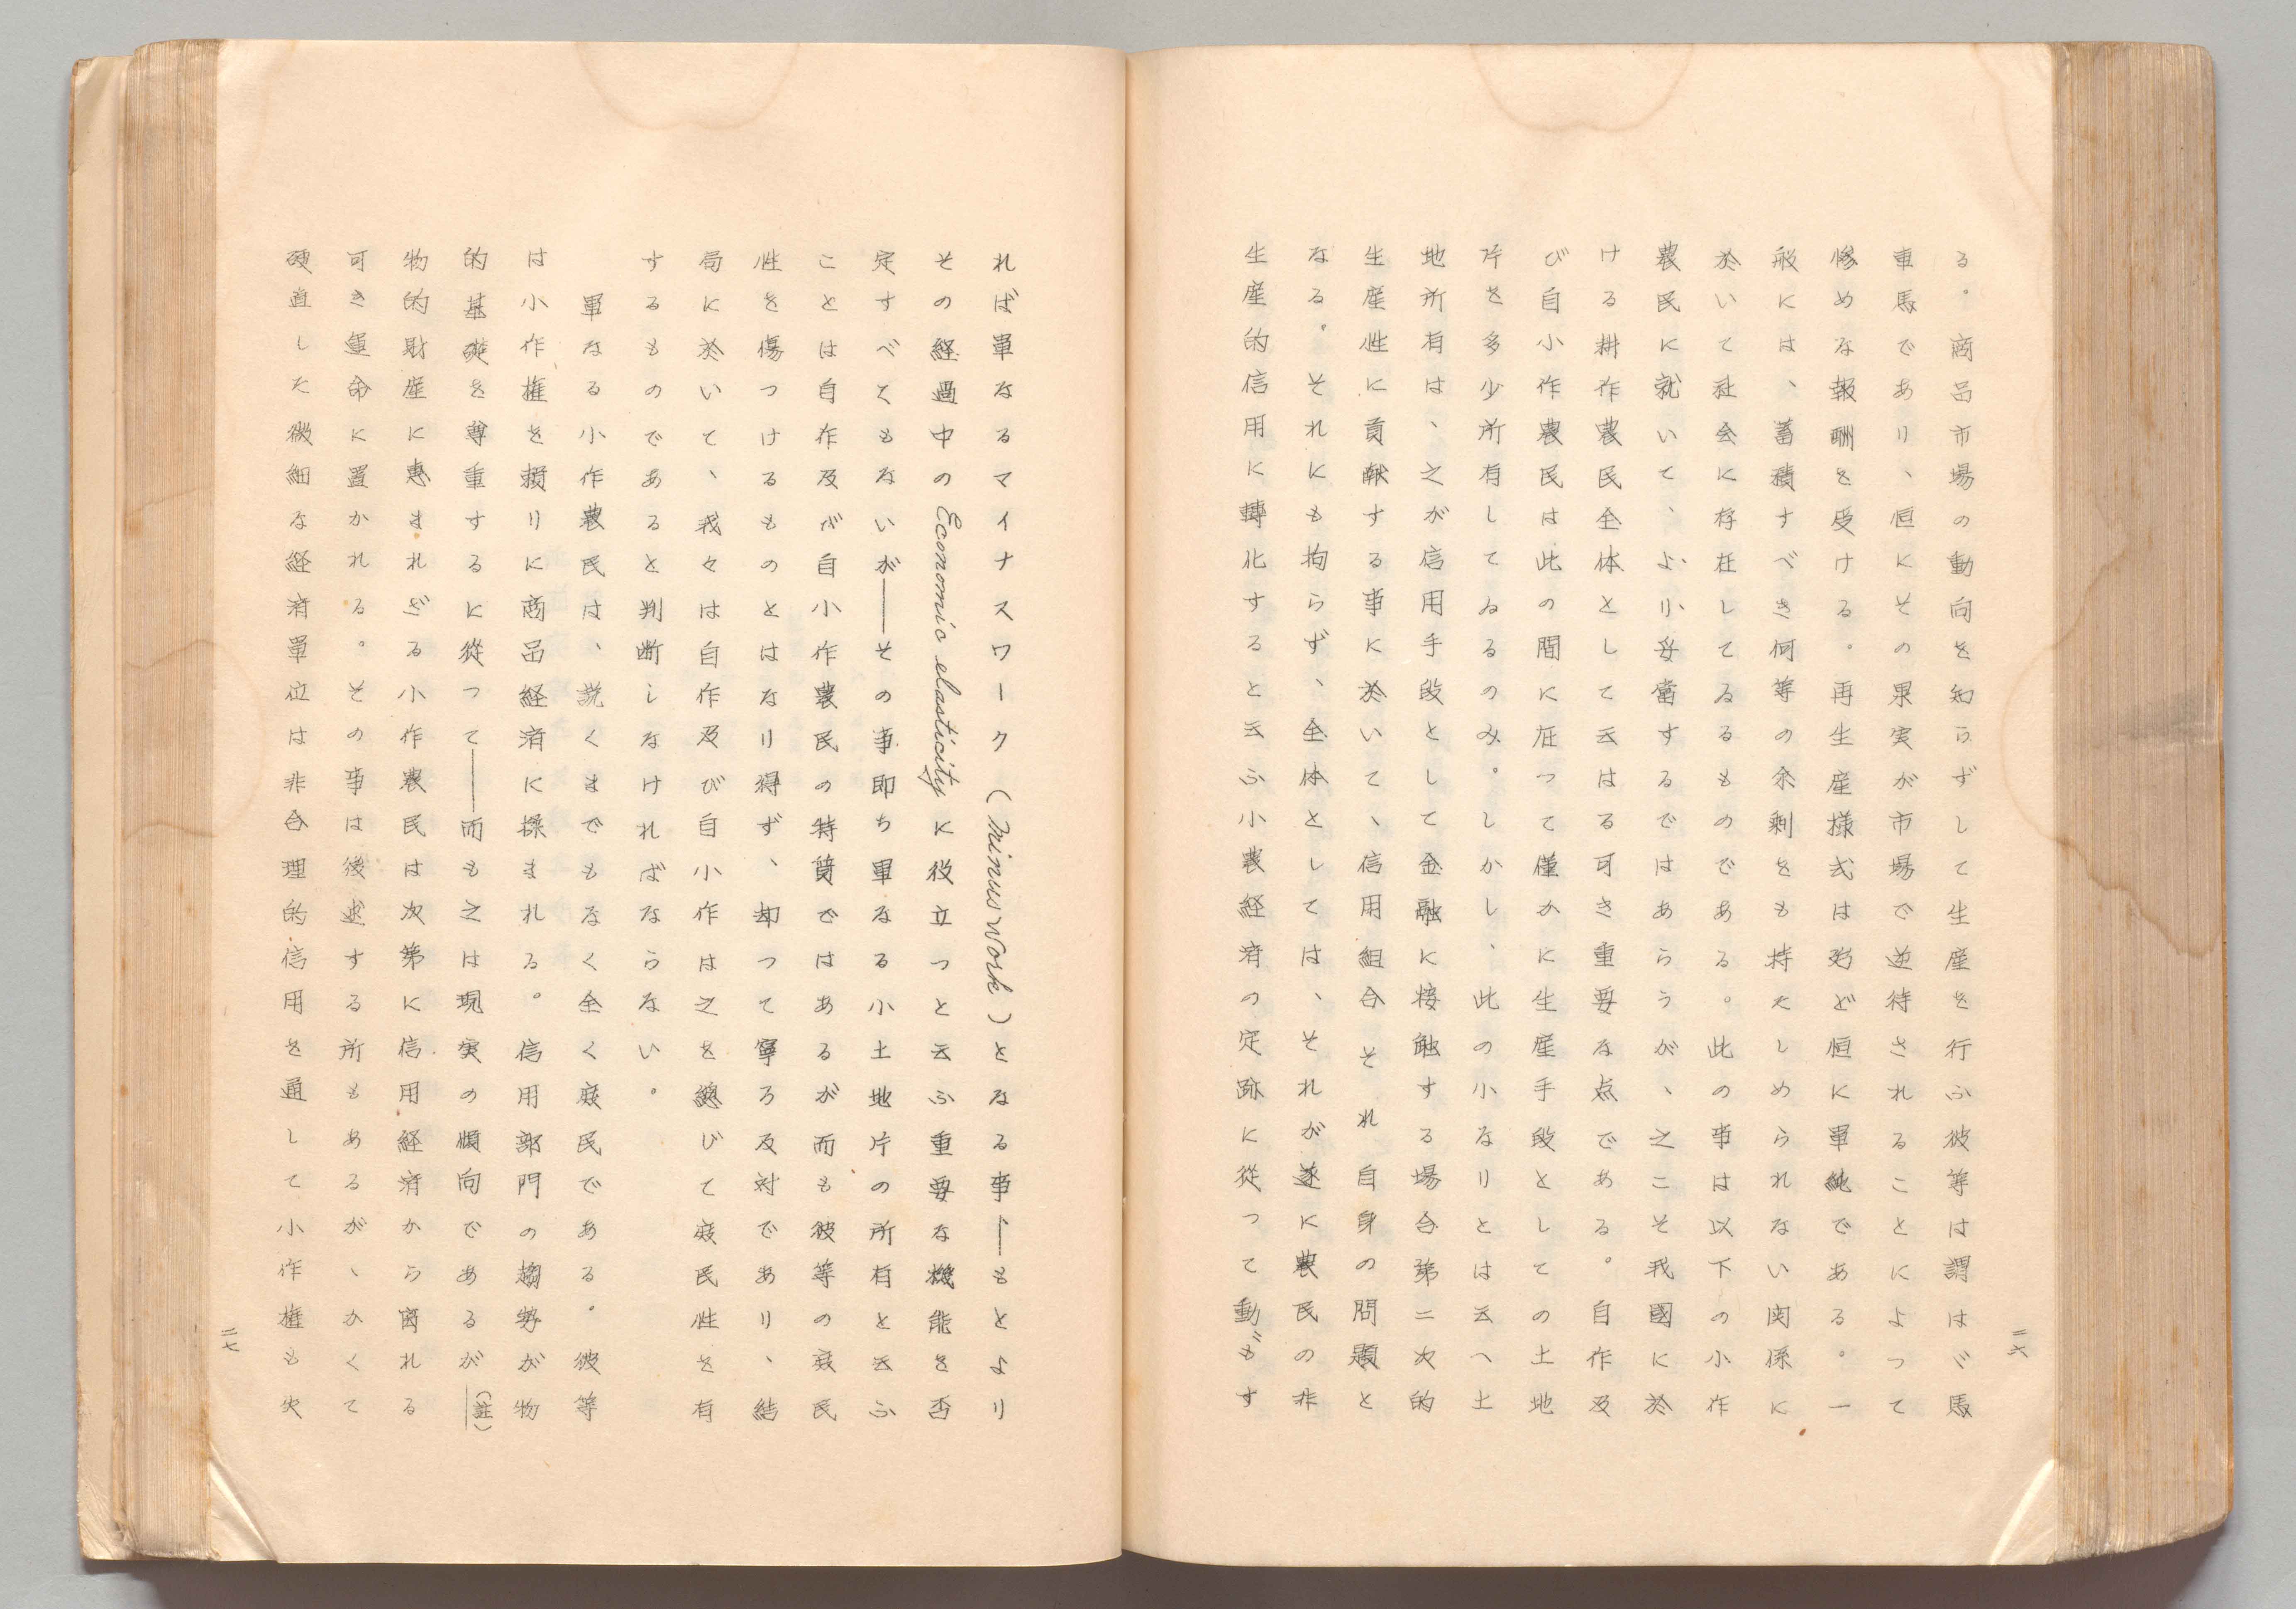 る。商品市場の動向を知らずして生産を行ふ彼等は謂はゞ馬
車馬であり、恒にその果実が市場で逆待されることによつて
惨めな報酬を受ける。再生産様式は殆ど恒に単純である。一
般には、蓄積すべき何等の余剰をも持たしめられない関係に
於いて社会に存在してゐるものである。此の事は以下の小作
農民に就いて、より妥當するではあらうが、之こそ我國に於
ける耕作農民全体として云はる可き重要な点である。自作及
び自小作農民は此の間に在つて僅かに生産手段としての土地
片を多少所有してゐるのみ。しかし、此の小なりとは云へ土
地所有は、之が信用手段として金融に接触する場合第二次的
生産性に貢献する事に於いて、信用組合それ自身の問題と
なる。それにも拘らず、全体としては、それが遂に農民の非
生産的信用に轉化すると云ふ小農経済の定跡に從つて動もす
二六
れば単なるマイナスワーク(minus work)となる事――もとより
その経過中の Economic elasticity に役立つと云ふ重要な機能を否
定すべくもないが――その事即ち単なる小土地片の所有と云ふ
ことは自作及び自小作農民の特質ではあるが而も彼等の貧民
性を傷つけるものとはなり得ず、却つて寧ろ反対であり、結
局に於いて、我々は自作及び自小作は之を總びて貧民性を有
するものであると判断しなければならない。
単なる小作農民は、説くまでもなく全く貧民である。彼等
は小作権を頼りに商品経済に揉まれる。信用部門の趨勢が物
的基礎を尊重するに從つて――而も之は現実の傾向であるが(註)
物的財産に恵まれざる小作農民は次第に信用経済から離れる
可き運命に置かれる。その事は後述する所もあるが、かくて
硬直した微細な経済単位は非合理的信用を通して小作権も失
二七